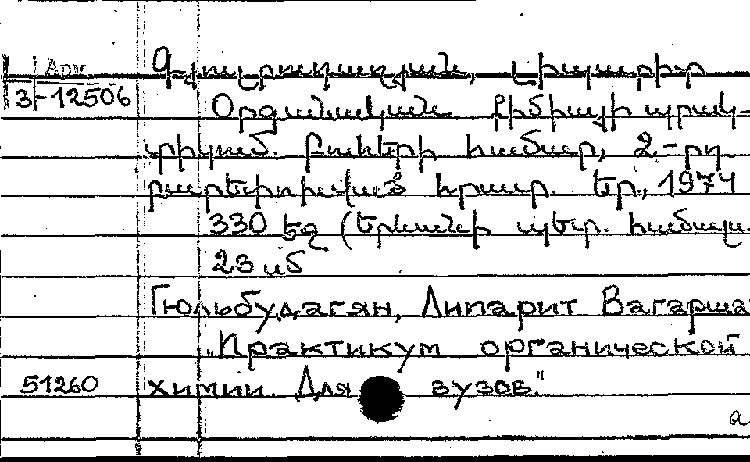 Арм Գյուլբուդաղյան, Լիպարիտ
3-12506 Օրգանական քիմիայի պրակ-
տիկում. բուհերի համար, 2-րդ
բարեփոխված հրատ. Եր., 1974
330 էջ (Երևանի պետ. համալ.
23 սմ
Гюльбудагян, Липарит Вагарша
„Практикум органической
51260 химии. Для вузов."
а